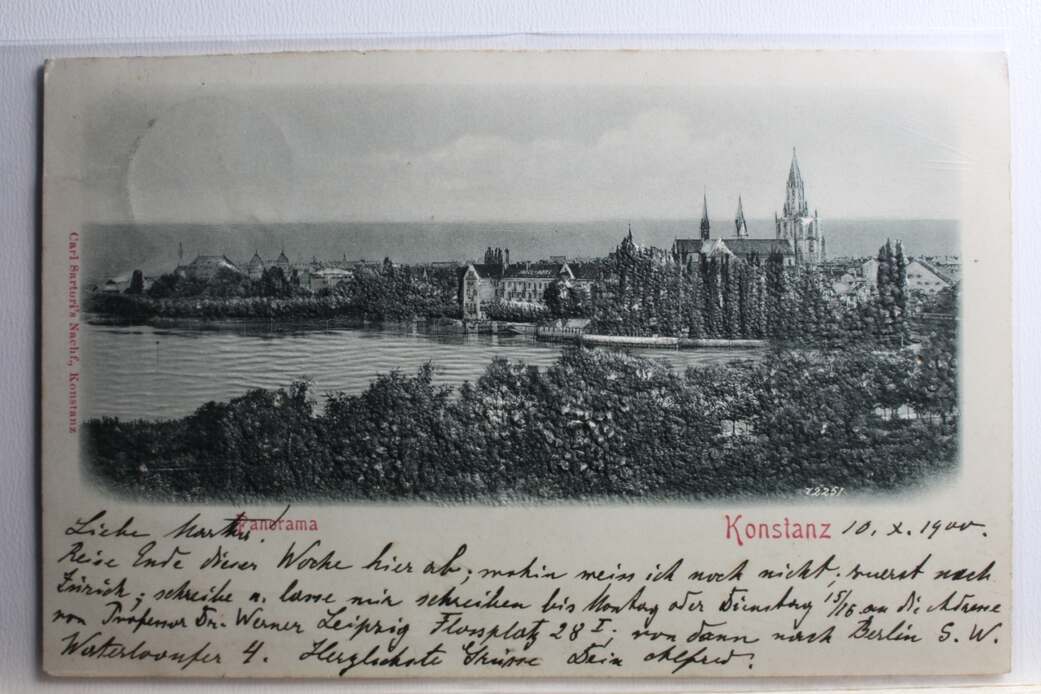 Carl Sartori's Nachf., Konstanz
72251
Panorama
Konstanz 10. X. 1900.
Liebe Martha!
Reise Ende dieser Woche hier ab; wohin weiss ich noch nicht, zuerst nach
Zürich; schreibe u. lasse mir schreiben bis Montag oder Dienstag 15/16 an die Adresse
von Professor Dr. Werner Leipzig Flossplatz 28 I; von dann nach Berlin S. W.
Waterlooufer 4. Herzlichste Grüsse Dein Alfred.